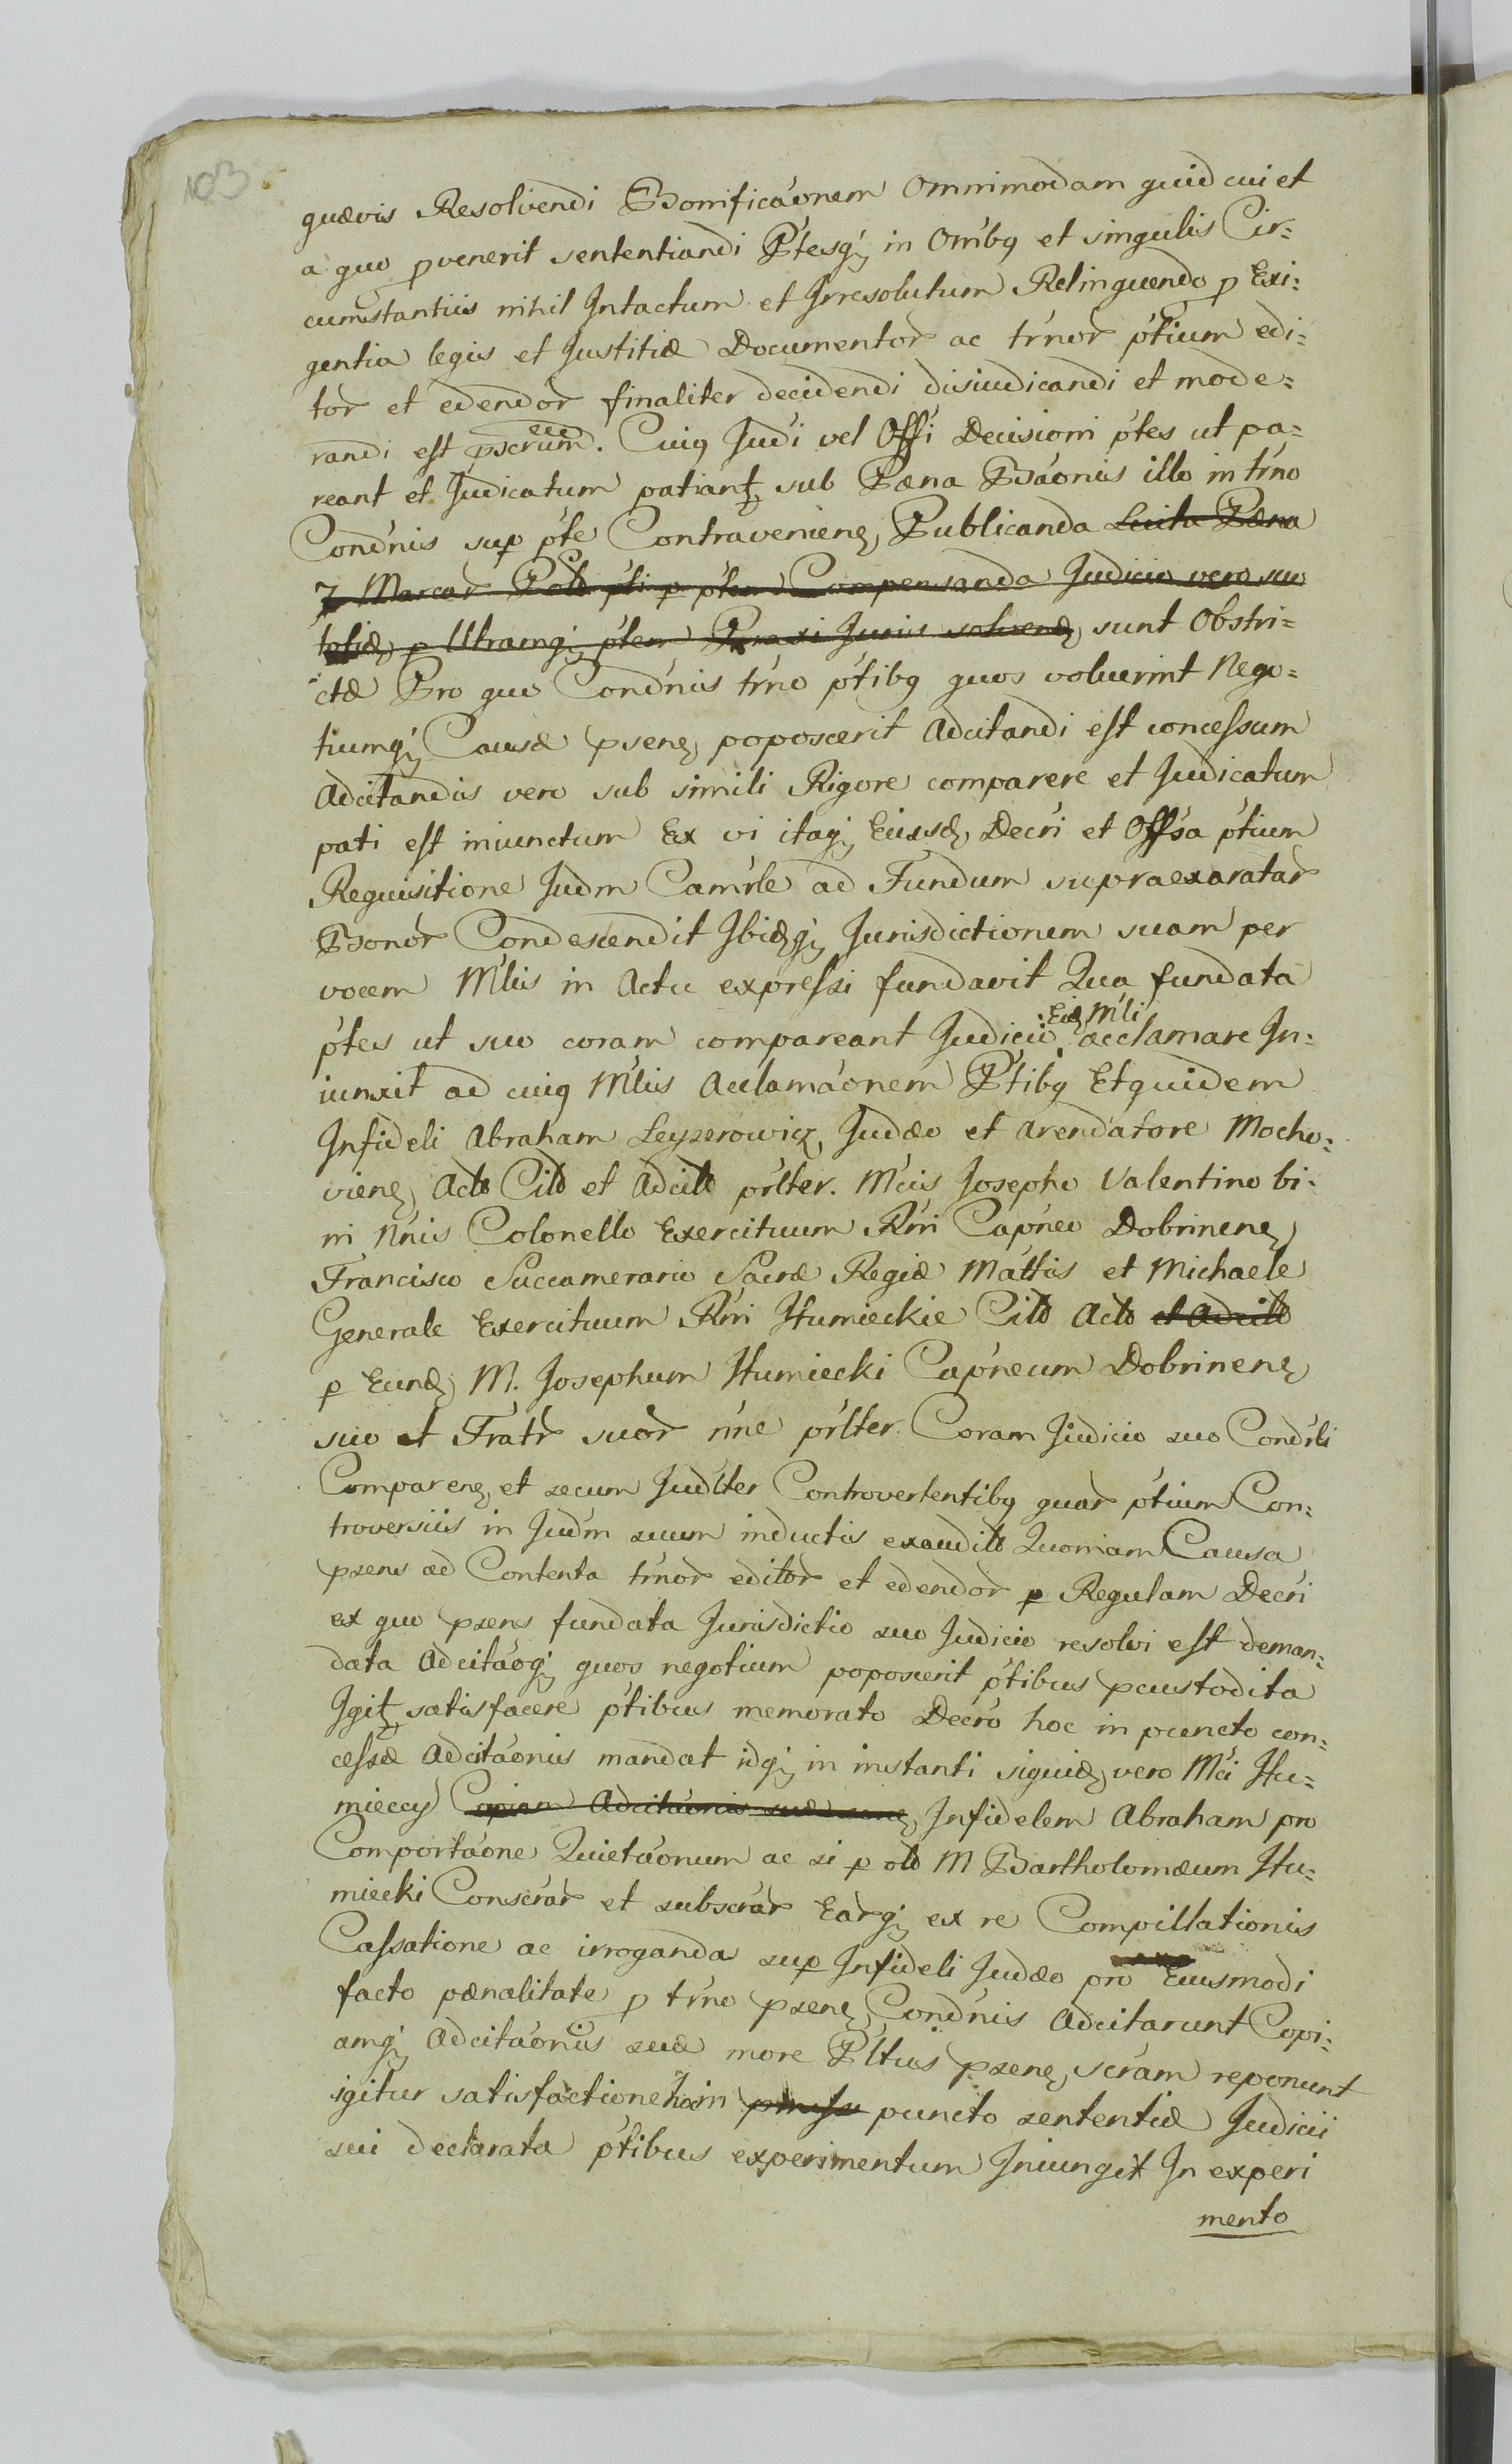 103
quævis Resolvendi Bonificãonem Omnimodam quid cui et
a quo pvenerit sententiandi Ptesq; in Omibq et singulis Cir=
cumstantiis nihil Intactum et Irresolutum Relinquendo p Exi=
gentia legis et Justitiæ Documentor ac trnor ptium edi=
tor et edendor finaliter decidendi disiudicandi et mode=
randi est pscrum. Cuiq Judi vel Offi Decisioni ptes ut pa=
reant et Judicatum patiant, sub Pæna Bãonis illo in trno
Condnis sup pte Contravenienẽ, Publicanda Luita Pæna
7 Marcar Polo pti p ptem Compensanda Judicio vero suo
p Utramq; ptem Praxi Juris solvenẽ, sunt Obstri=
ctæ Pro quo Condnis trno ptibq quos voluerint Nego=
tiumq; Causæ psenẽ, poposcerit Adcitandi est concessum
Adcitandis vero sub simili Rigore comparere et Judicatum
pati est iniunctum Ex vi itaq; Eiusdẽ, Decri et Offsa ptium
Requisitione Judm Camrle ad Fundum supraexaratar
Bonor Condescendit Ibidẽq; Jurisdictionem suam per
vocem Mlis in Actu expressi fundavit Qua fundata
ptes ut suo coram compareant Judicio Eidẽ Mli acclamare In=
iunxit ad cuiq Mlis Acclamãonem Ptibq Et quidem
Infideli Abraham Leyzerowicz, Judæo et Arendatore Mocho=
vienẽ, Acto Cito et Adcito prlter. Mcis Josepho Valentino bi=
ni Nnis Colonello Exercituum Rni Capneo Dobrinenẽ,
Francisco Succamerario Sacræ Regiæ Mattis et Michaele
Generale Exercituum Rni Humieckie Cito Acto et Adcito
p Eundẽ, M. Josephum Humiecki Capneum Dobrinenẽ,
suo et Fratr suor nne prlter. Coram Judicio suo Condrli
Comparenẽ, et secum Judlter Controvertentibq quar ptium Con=
troversiis in Judm suum inductis exaudito Quoniam Causa
psens ad Contenta trnor editor et edendor p Regulam Decri
ex quo psens fundata Jurisdictio suo Judicio resolvi est deman=
data Adcitãoq; quos negotium poposcerit ptibus pcustodita
Igit, satisfacere ptibus memorato Decro hoc in puncto con=
cessæ Adcitãonis mandat idq; in instanti siquidẽ, vero Mci Hu=
mieccy Copiam Adcitãonis suæ, Infidelem Abraham pro
Comportãone Quietãonum ac si p olo M Bartholomæum Hu=
miecki Conscrar et subscrar Earq; ex re Compillationis
Cassatione ac irroganda sup Infideli Judæo pro Eiusmodi
facto pænalitate p trno psenẽ, Condnis Adcitarunt Copi=
amq; Adcitãonis suæ more Pltus psenẽ, scram reponunt
igitur satisfactione hoc in puncto sententiæ Judicii
sui declarata ptibus experimentum Iniungit In experi
mento